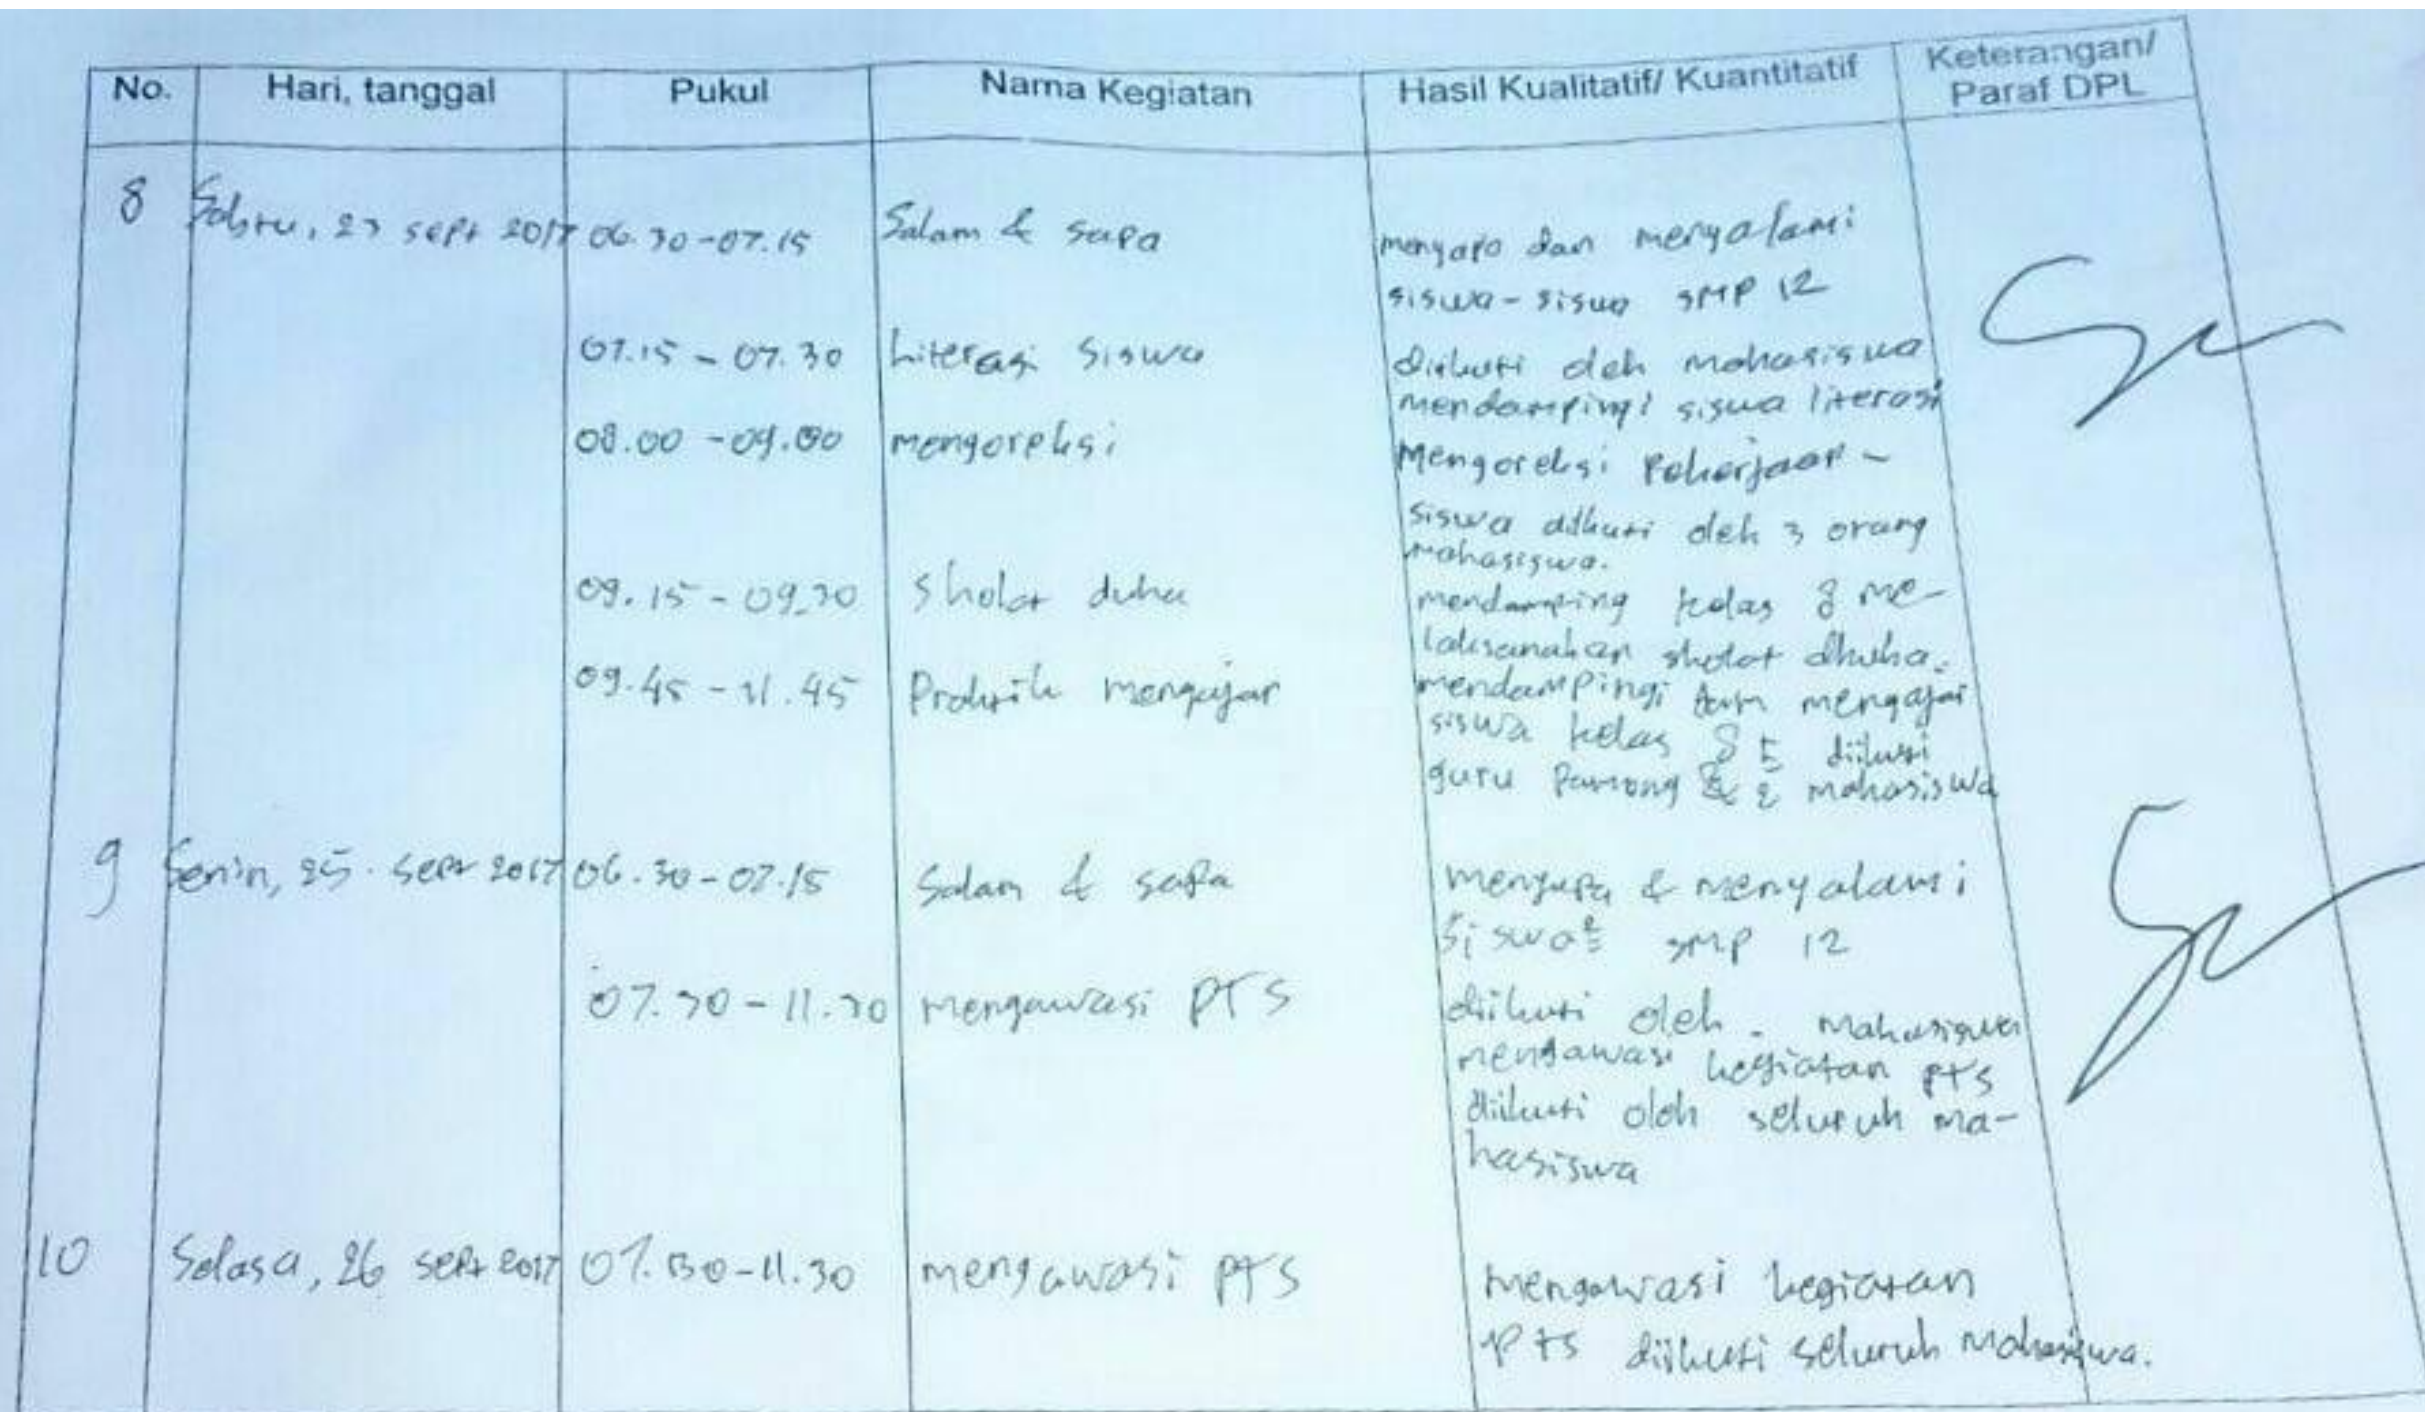 No. Hari, tanggal Pukul Nama Kegiatan Hasil Kualitatif/ Kuantitatif Keterangan/
Paraf DPL
8 Sabtu, 23 sept 2017 06.30-07.15 Salam & sapa menyapa dan menyalami
siswa-siswa SMP 12
07.15 - 07.30 Literasi siswa diikuti oleh mahasiswa
mendampingi siswa literasi
08.00 - 09.00 mengoreksi Mengoreksi Pekerjaan -
siswa diikuti oleh 3 orang
mahasiswa.
09.15 - 09.30 Sholat duha mendamping kelas 8 me-
laksanakan sholat dhuha.
09.45 - 11.45 Praktik mengajar mendampingi mengajar
siswa kelas 8 E diikuti
guru Pamong & 2 mahasiswa
9 Senin, 25. sept 2017 06.30-07.15 Salam & sapa menyapa & menyalami
Siswa² SMP 12
07.30-11.30 mengawasi PTS diikuti oleh - mahasiswa
mengawasi kegiatan PTS
diikuti oleh seluruh ma-
hasiswa
10 Selasa, 26 sept 2017 07.30-11.30 mengawasi PTS mengawasi kegiatan
PTS diikuti seluruh Mahasiswa.